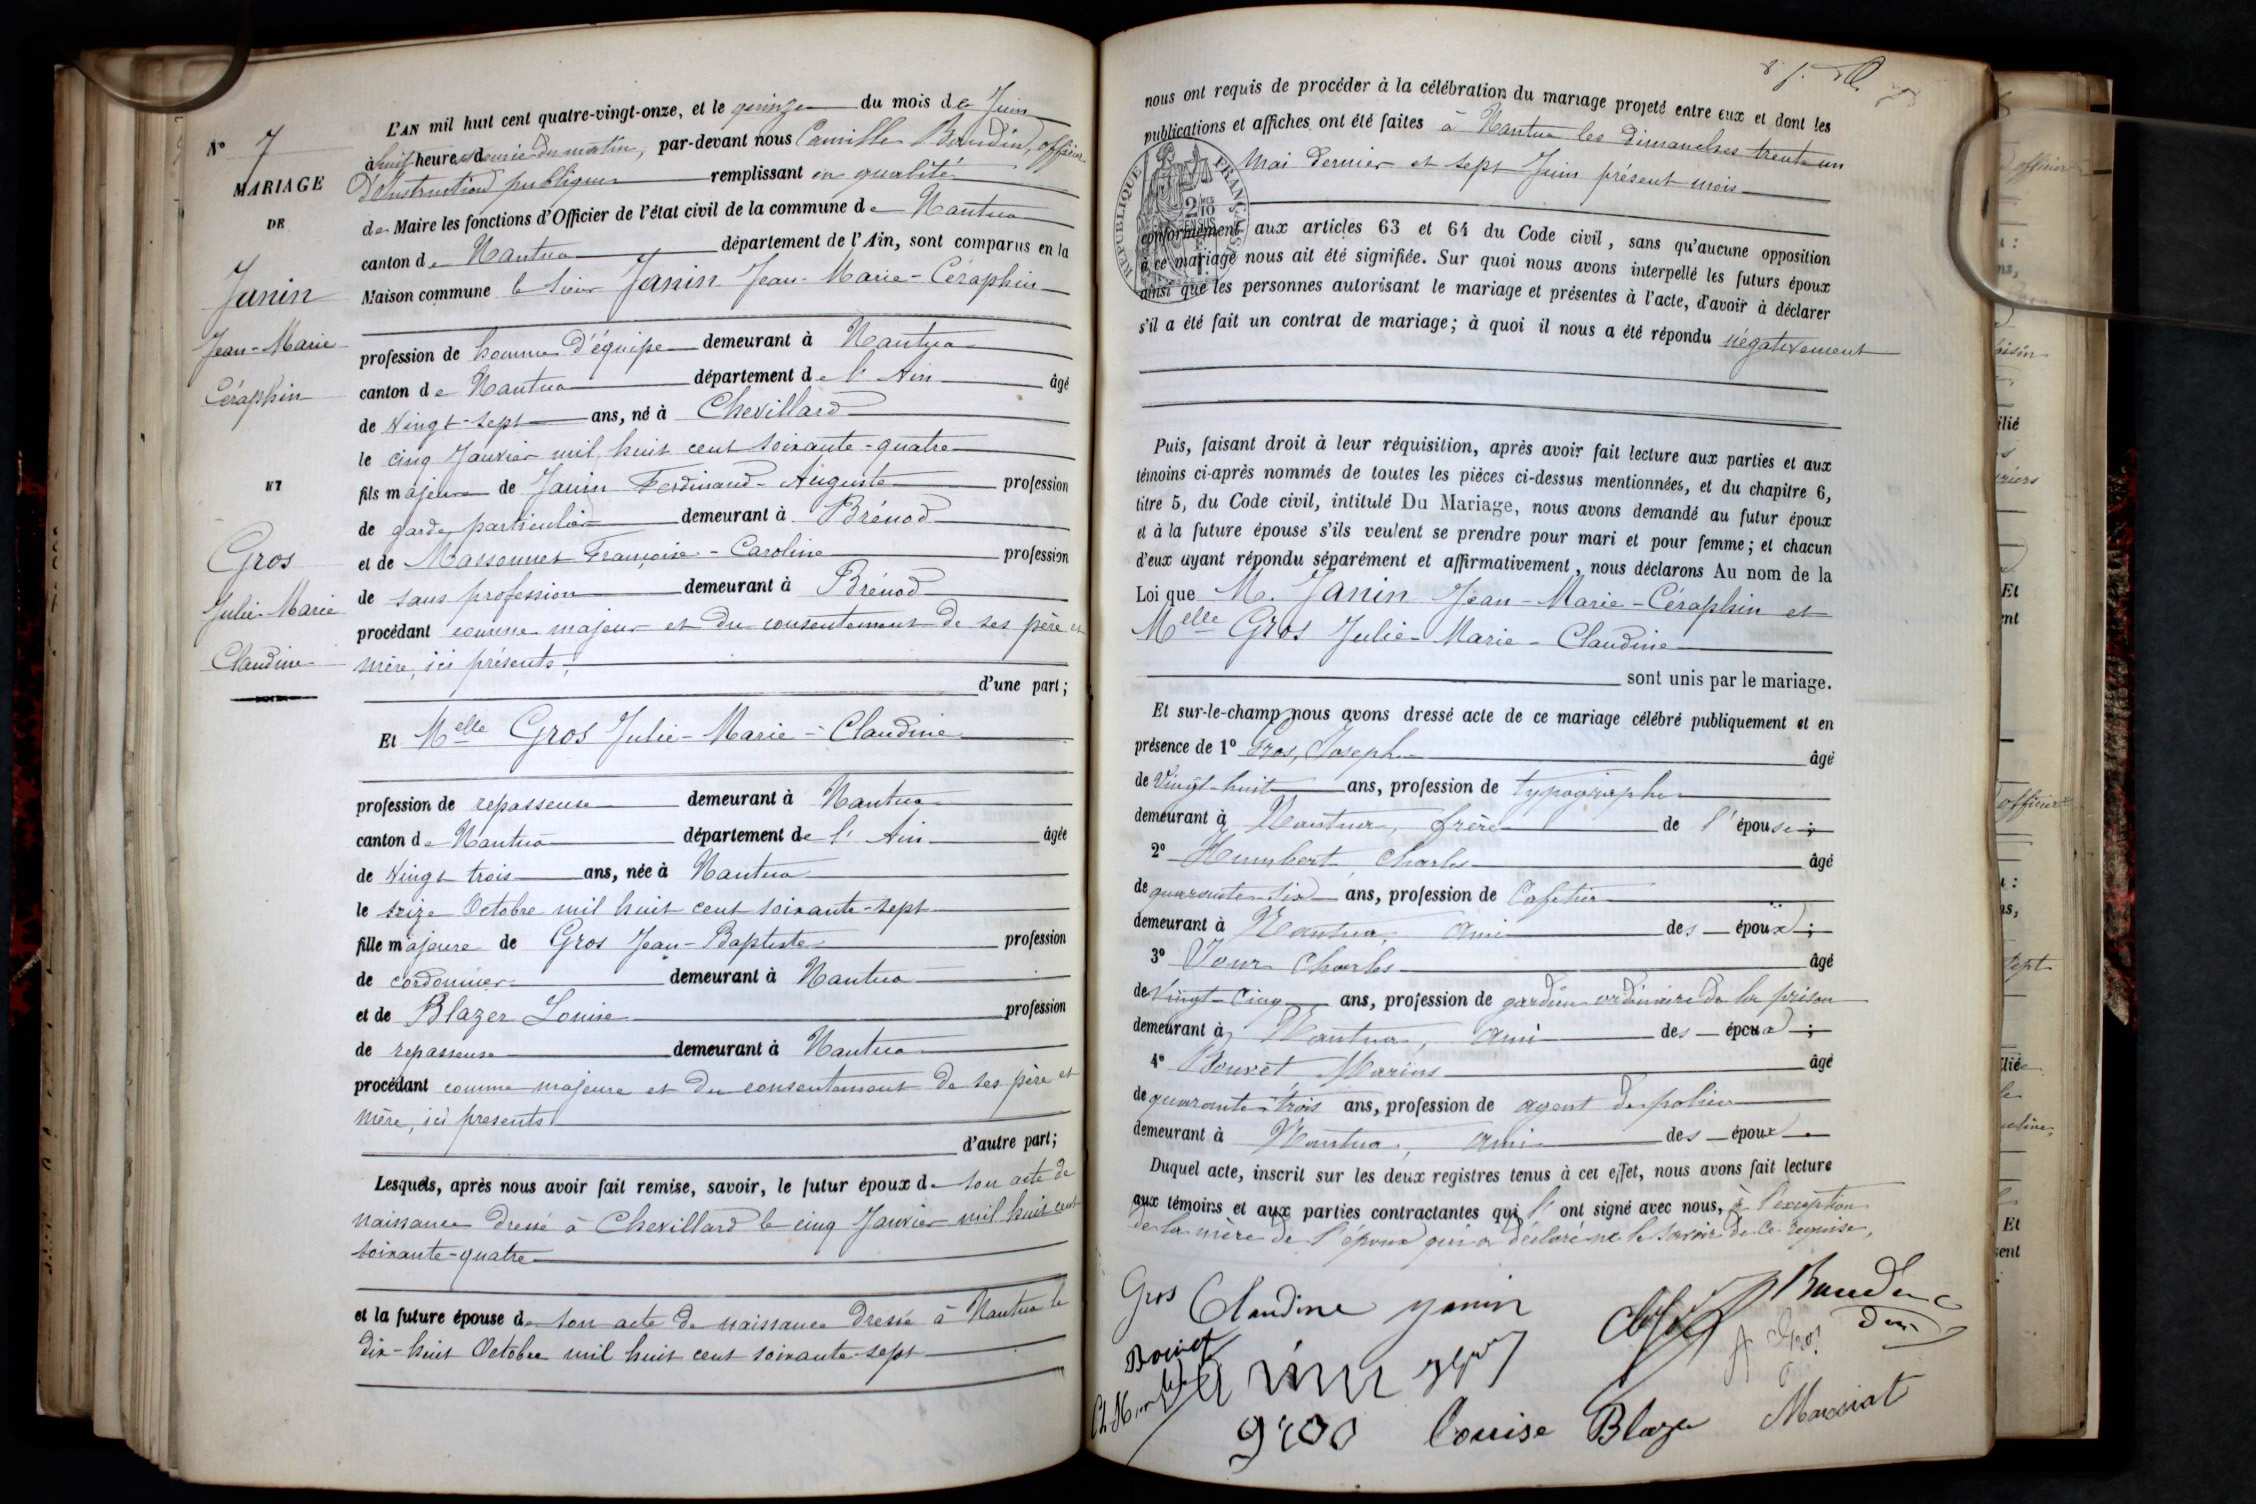 L'AN mil huit cent quatre-vingt-onze, et le quinze du mois de Juin
N° 7
à huit heures du matin, par-devant nous Camille Baudin, officier
MARIAGE
d'Instruction publique remplissant en qualité
DE
de Maire les fonctions d'Officier de l'état civil de la commune de Nantua
canton de Nantua département de l'Ain, sont comparus en la
Janin
Maison commune le sieur Janin Jean-Marie-Céraphin
Jean-Marie
profession de homme d'équipe demeurant à Nantua
Céraphin
canton de Nantua département de l'Ain âgé
de vingt-sept ans, né à Chevillard
le cinq Janvier mil huit cent soixante-quatre
ET
fils majeur de Janin Ferdinand-Auguste profession
de garde particulier demeurant à Brénod
Gros
et de Massonnet Françoise-Caroline profession
Julie-Marie
de sans profession demeurant à Brénod
procédant comme majeur et du consentement de ses père et
Claudine
mère, ici présents,
d'une part;
Et Melle Gros Julie-Marie-Claudine
profession de repasseuse demeurant à Nantua
canton de Nantua département de l'Ain âgée
de vingt trois ans, née à Nantua
le seize Octobre mil huit cent soixante-sept
fille majeure de Gros Jean-Baptiste profession
de cordonnier demeurant à Nantua
et de Blazer Louise profession
de repasseuse demeurant à Nantua
procédant comme majeure et du consentement de ses père et
mère, ici présents
d'autre part;
Lesquels, après nous avoir fait remise, savoir, le futur époux de son acte de
naissance dressé à Chevillard le cinq Janvier mil huit cent
soixante-quatre
et la future épouse de son acte de naissance dressé à Nantua le
dix-huit Octobre mil huit cent soixante-sept
nous ont requis de procéder à la célébration du mariage projeté entre eux et dont les
publications et affiches ont été faites à Nantua les dimanches trente un
Mai dernier et sept Juin présent mois
RÉPUBLIQUE FRANÇAISE
2/10 EN SUS
conformément aux articles 63 et 64 du Code civil, sans qu'aucune opposition
à ce mariage nous ait été signifiée. Sur quoi nous avons interpellé les futurs époux
ainsi que les personnes autorisant le mariage et présentes à l'acte, d'avoir à déclarer
s'il a été fait un contrat de mariage; à quoi il nous a été répondu négativement
Puis, faisant droit à leur réquisition, après avoir fait lecture aux parties et aux
témoins ci-après nommés de toutes les pièces ci-dessus mentionnées, et du chapitre 6,
titre 5, du Code civil, intitulé Du Mariage, nous avons demandé au futur époux
et à la future épouse s'ils veulent se prendre pour mari et pour femme; et chacun
d'eux ayant répondu séparément et affirmativement, nous déclarons Au nom de la
Loi que M. Janin Jean-Marie-Céraphin et
Melle Gros Julie-Marie-Claudine
sont unis par le mariage.
Et sur-le-champ nous avons dressé acte de ce mariage célébré publiquement et en
présence de 1° Gros, Joseph âgé
de Vingt-huit ans, profession de typographe
demeurant à Nantua, frère de l'épouse;
2° Humbert Charles âgé
de quarante-six ans, profession de Cafetier
demeurant à Nantua, ami des époux;
3° Charles âgé
de Vingt-cinq ans, profession de gardien ordinaire de la prison
demeurant à Nantua, ami des époux;
4° Bouvet Marius âgé
de quarante-trois ans, profession de agent de police
demeurant à Nantua, ami des époux.
Duquel acte, inscrit sur les deux registres tenus à cet effet, nous avons fait lecture
aux témoins et aux parties contractantes qui l'ont signé avec nous, à l'exception
de la mère de l'époux qui a déclaré ne le savoir de ce requise,
Gros Claudine Janin
Baudin
Bouvet
Gros Louise Blazer